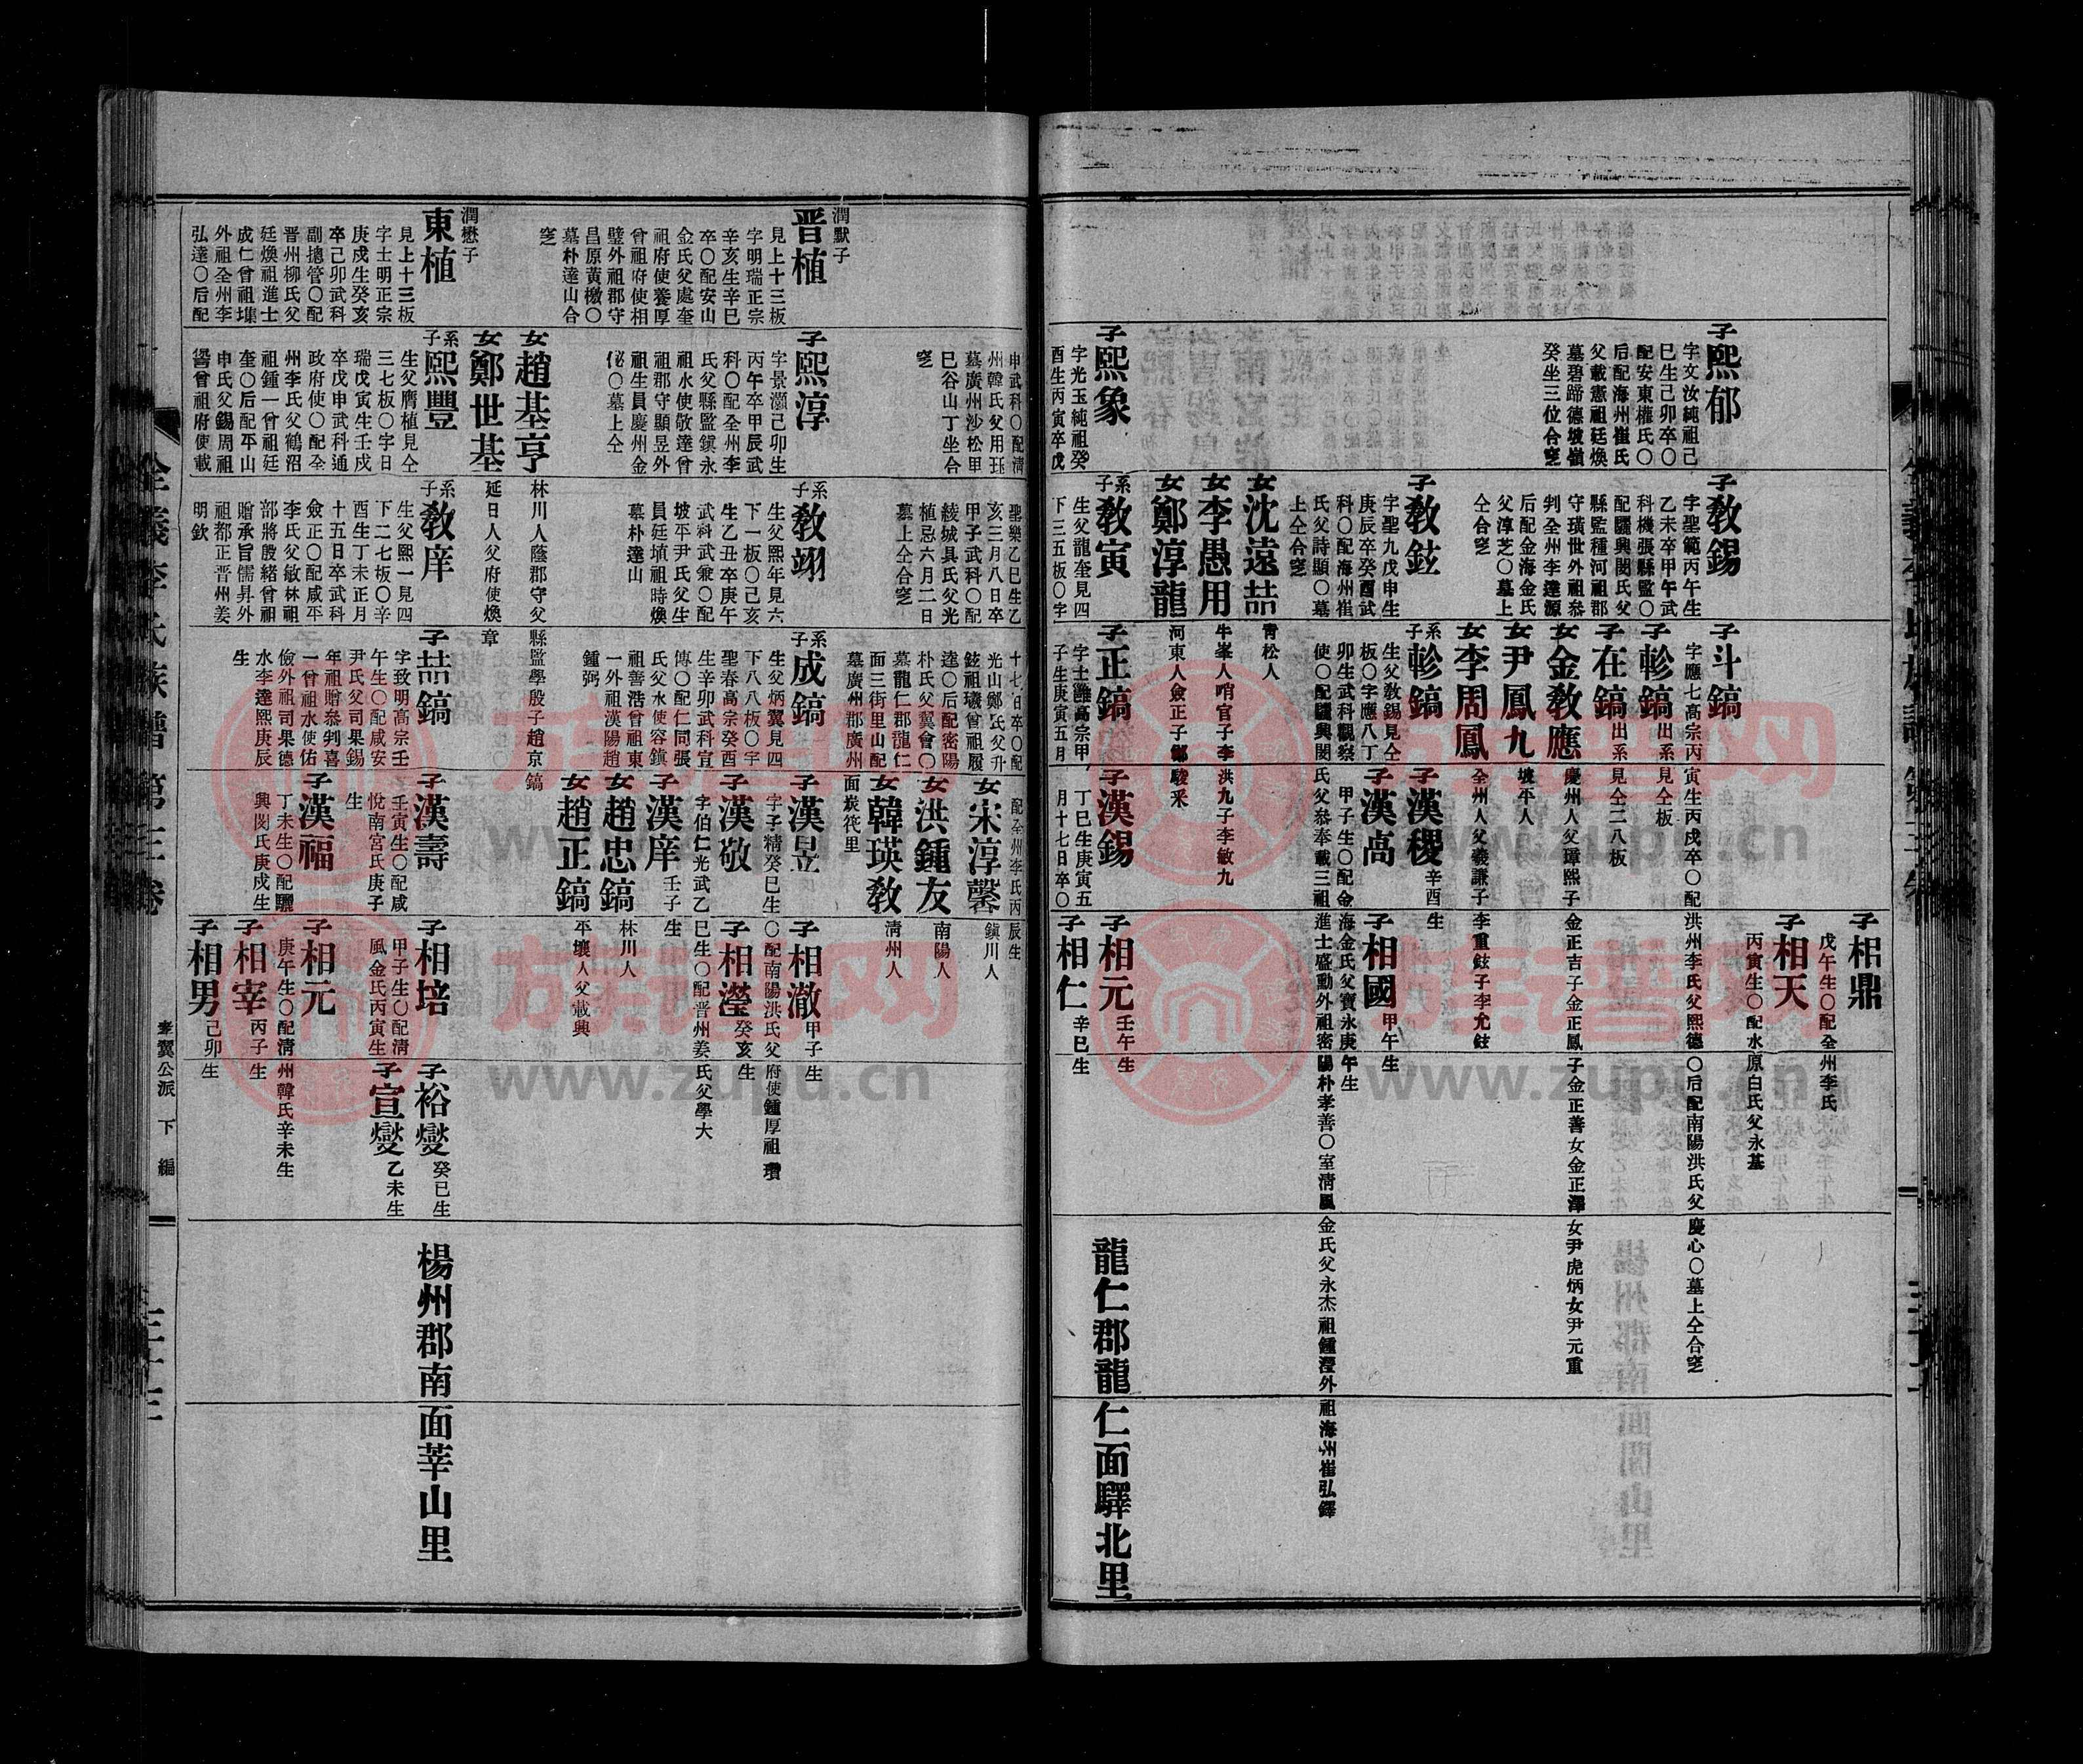 子熙郁
字文汝純祖己
巳生己卯卒〇
配安東權氏〇
后配海州崔氏
父載憲祖廷煥
墓碧蹄德坡嶺
癸坐三位合窆
子熙象
字光玉純祖癸
酉生丙寅卒戊
子教錫
字聖範丙午生
乙未卒甲午武
科機張縣監〇
配驪興閔氏父
縣監種河祖郡
守璜世外祖叅
判全州李達源
后配金海金氏
父淳芝〇墓上
仝合窆
子教鉉
字聖九戊申生
庚辰卒癸酉武
科〇配海州崔
氏父詩顯〇墓
上仝合窆
女沈遠喆
青松人
女李愚用
牛峯人哨官子李
洪九子李敏九
女鄭淳龍
河東人僉正子鄭
駿采
系子教寅
生父龍奎見四
下三五板〇字
子斗鎬
字應七高宗丙
寅生丙戌卒〇配
洪州李氏父熙德〇后配南陽洪氏父慶心〇墓上仝合窆
子軫鎬
出系見仝板
子在鎬
出系見仝二八板
女金教應
慶州人父璋熙子
金正吉子金正鳳子金正善女金正澤女尹虎炳女尹元重
女尹鳳九
坡平人
女李周鳳
全州人父義謙子
李重鉉子李允鉉
系子軫鎬
生父教錫見仝
板〇字應八丁
卯生武科觀察
使〇配驪興閔
氏父叅奉載三祖
進士盛動外祖密陽朴孝善〇室清風金氏父永杰祖鍾瀅外祖海州崔弘鐸
子正鎬
字士雝高宗甲
子生庚寅五月
子漢稷
辛酉生
子漢高
甲子生〇配金
海金氏父寶永庚午生
子漢錫
丁巳生庚寅五
月十七日卒〇
子相鼎
戊午生〇配全州李氏
子相天
丙寅生〇配水原白氏父永基
子相國
甲午生
子相元
壬午生
子相仁
辛巳生
龍仁郡龍仁面驛北里
潤默子
晋植
見上十三板
字明瑞正宗
辛亥生辛巳
卒〇配安山
金氏父處奎
祖府使養厚
曾祖府使相
璧外祖郡守
昌原黃檄〇
墓朴達山合
窆
潤懋子
東植
見上十三板
字士明正宗
庚戌生癸亥
卒己卯武科
副摠管〇配
晋州柳氏父
廷煥祖進士
成仁曾祖㙫
外祖全州李
弘達〇后配
申武科〇配清
州韓氏父用珏
墓廣州沙松里
巳谷山丁坐合
窆
子熙淳
字景灝己卯生
丙午卒甲辰武
科〇配全州李
氏父縣監鎮永
祖水使敬達曾
祖郡守顯昱外
祖生員慶州金
佖〇墓上仝
女趙基亨
林川人蔭郡守父
縣監學殷子趙京
鎬
女鄭世基
延日人父府使煥
章
系子熙豐
生父膺植見仝
三七板〇字日
瑞戊寅生壬戌
卒戊申武科通
政府使〇配全
州李氏父鶴沼
祖鍾一曾祖廷
奎〇后配平山
申氏父錫周祖
曾祖府使載
聖樂乙巳生乙
亥三月八日卒
甲子武科〇配
綾城具氏父光
植忌六月二日
墓上仝合窆
系子教翊
生父熙年見六
下一板〇己亥
生乙丑卒庚午
武科武兼〇配
坡平尹氏父生
員廷埴祖時煥
墓朴達山
系子教庠
生父熙一見四
下二七板〇辛
酉生丁未正月
十五日卒武科
僉正〇配咸平
李氏父敏林祖
部將殷緒曾祖
贈承旨儒昇外
祖都正晋州姜
明欽
十七日卒〇配
光山鄭氏父升
鉉祖璣曾祖履
逵〇后配密陽
朴氏父翼會〇
墓龍仁郡龍仁
面三街里山配
墓廣州郡廣州
面炭筏里
系子成鎬
生父炳翼見四
下八八板〇字
聖春高宗癸酉
生辛卯武科宣
傳〇配仁同張
氏父水使容鎮
祖善浩曾祖東
一外祖漢陽趙
鍾弼
子喆鎬
字致明高宗壬
午生〇配咸安
尹氏父司果錫
年祖贈叅判喜
一曾祖水使佑
儉外祖司果德
水李達熙庚辰
生
配全州李氏丙
辰生
女宋淳馨
鎮川人
女洪鍾友
南陽人
女韓瑛教
清州人
子漢昱
字子精癸巳生
〇配南陽洪氏父府使鍾厚祖瓚
子漢敬
字伯仁光武乙
巳生〇配晋州姜氏父學大
子漢庠
壬子生
女趙忠鎬
林川人
女趙正鎬
平壤人父載興
子漢壽
壬寅生〇配咸
悅南宮氏庚子
生
子漢福
丁未生〇配驪
興閔氏庚戌生
子相澈
甲子生
子相瀅
癸亥生
子相培
甲子生〇配清
風金氏丙寅生
子相元
庚午生〇配清州韓氏辛未生
子相宰
丙子生
子相男
己卯生
子裕燮
癸巳生
子宣燮
乙未生
楊州郡南面莘山里
全義李氏族譜第三卷
孝翼公派 下編
三十三
族譜网
www.zupu.cn